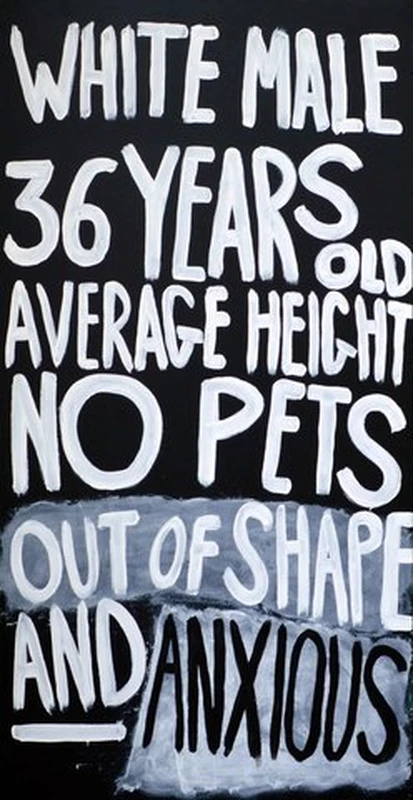 WHITE MALE
36 YEARS
OLD
AVERAGE HEIGHT
NO PETS
OUT OF SHAPE
AND ANXIOUS